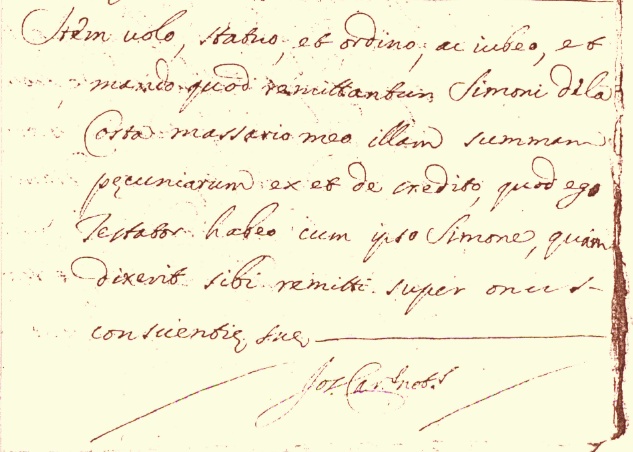 Item volo, statuo, et ordino, ac iubeo, et
mando quod remittantur Simoni dela
Costa massario meo illam summam
pecuniarum ex et de credito, quod ego
Testator habeo cum ipso Simone, quam
dixerit sibi remitti super onus
conscientię suę